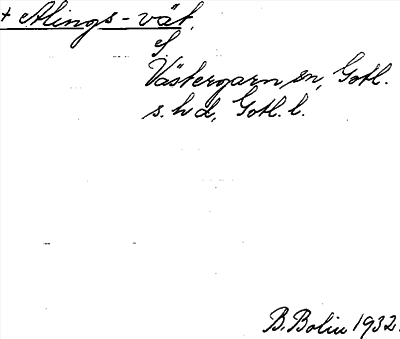 + Alings-vät.
S
Västergarn sn, Gotl.
s. hd, Gotl. l.
B. Bolin 1932.